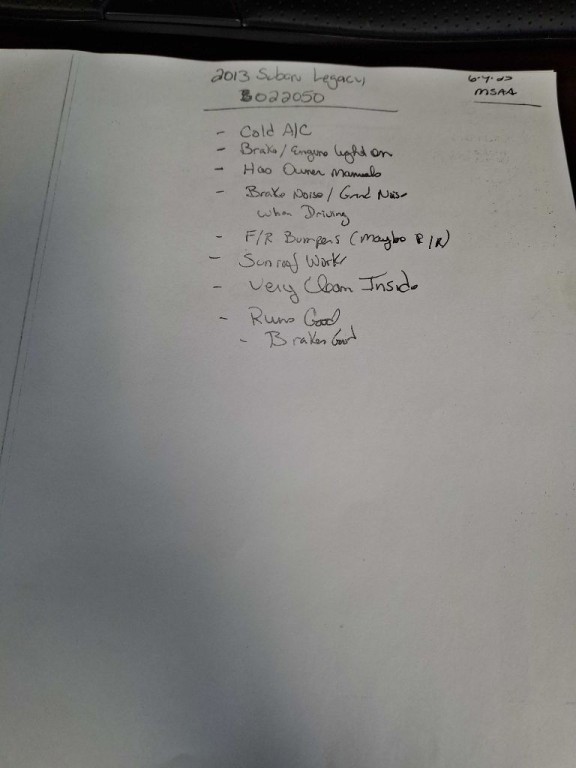 2013 Subaru Legacy
6-9-23
MSAA
3022050
- Cold A/C
- Brake/Engine light on
- Has Owner Manuals
- Brake Noise/Grind Noise
when Driving
- F/R Bumpers (Maybe P/R)
- Sunroof Works
- Very Clean Inside
- Runs Good
- Brakes Good